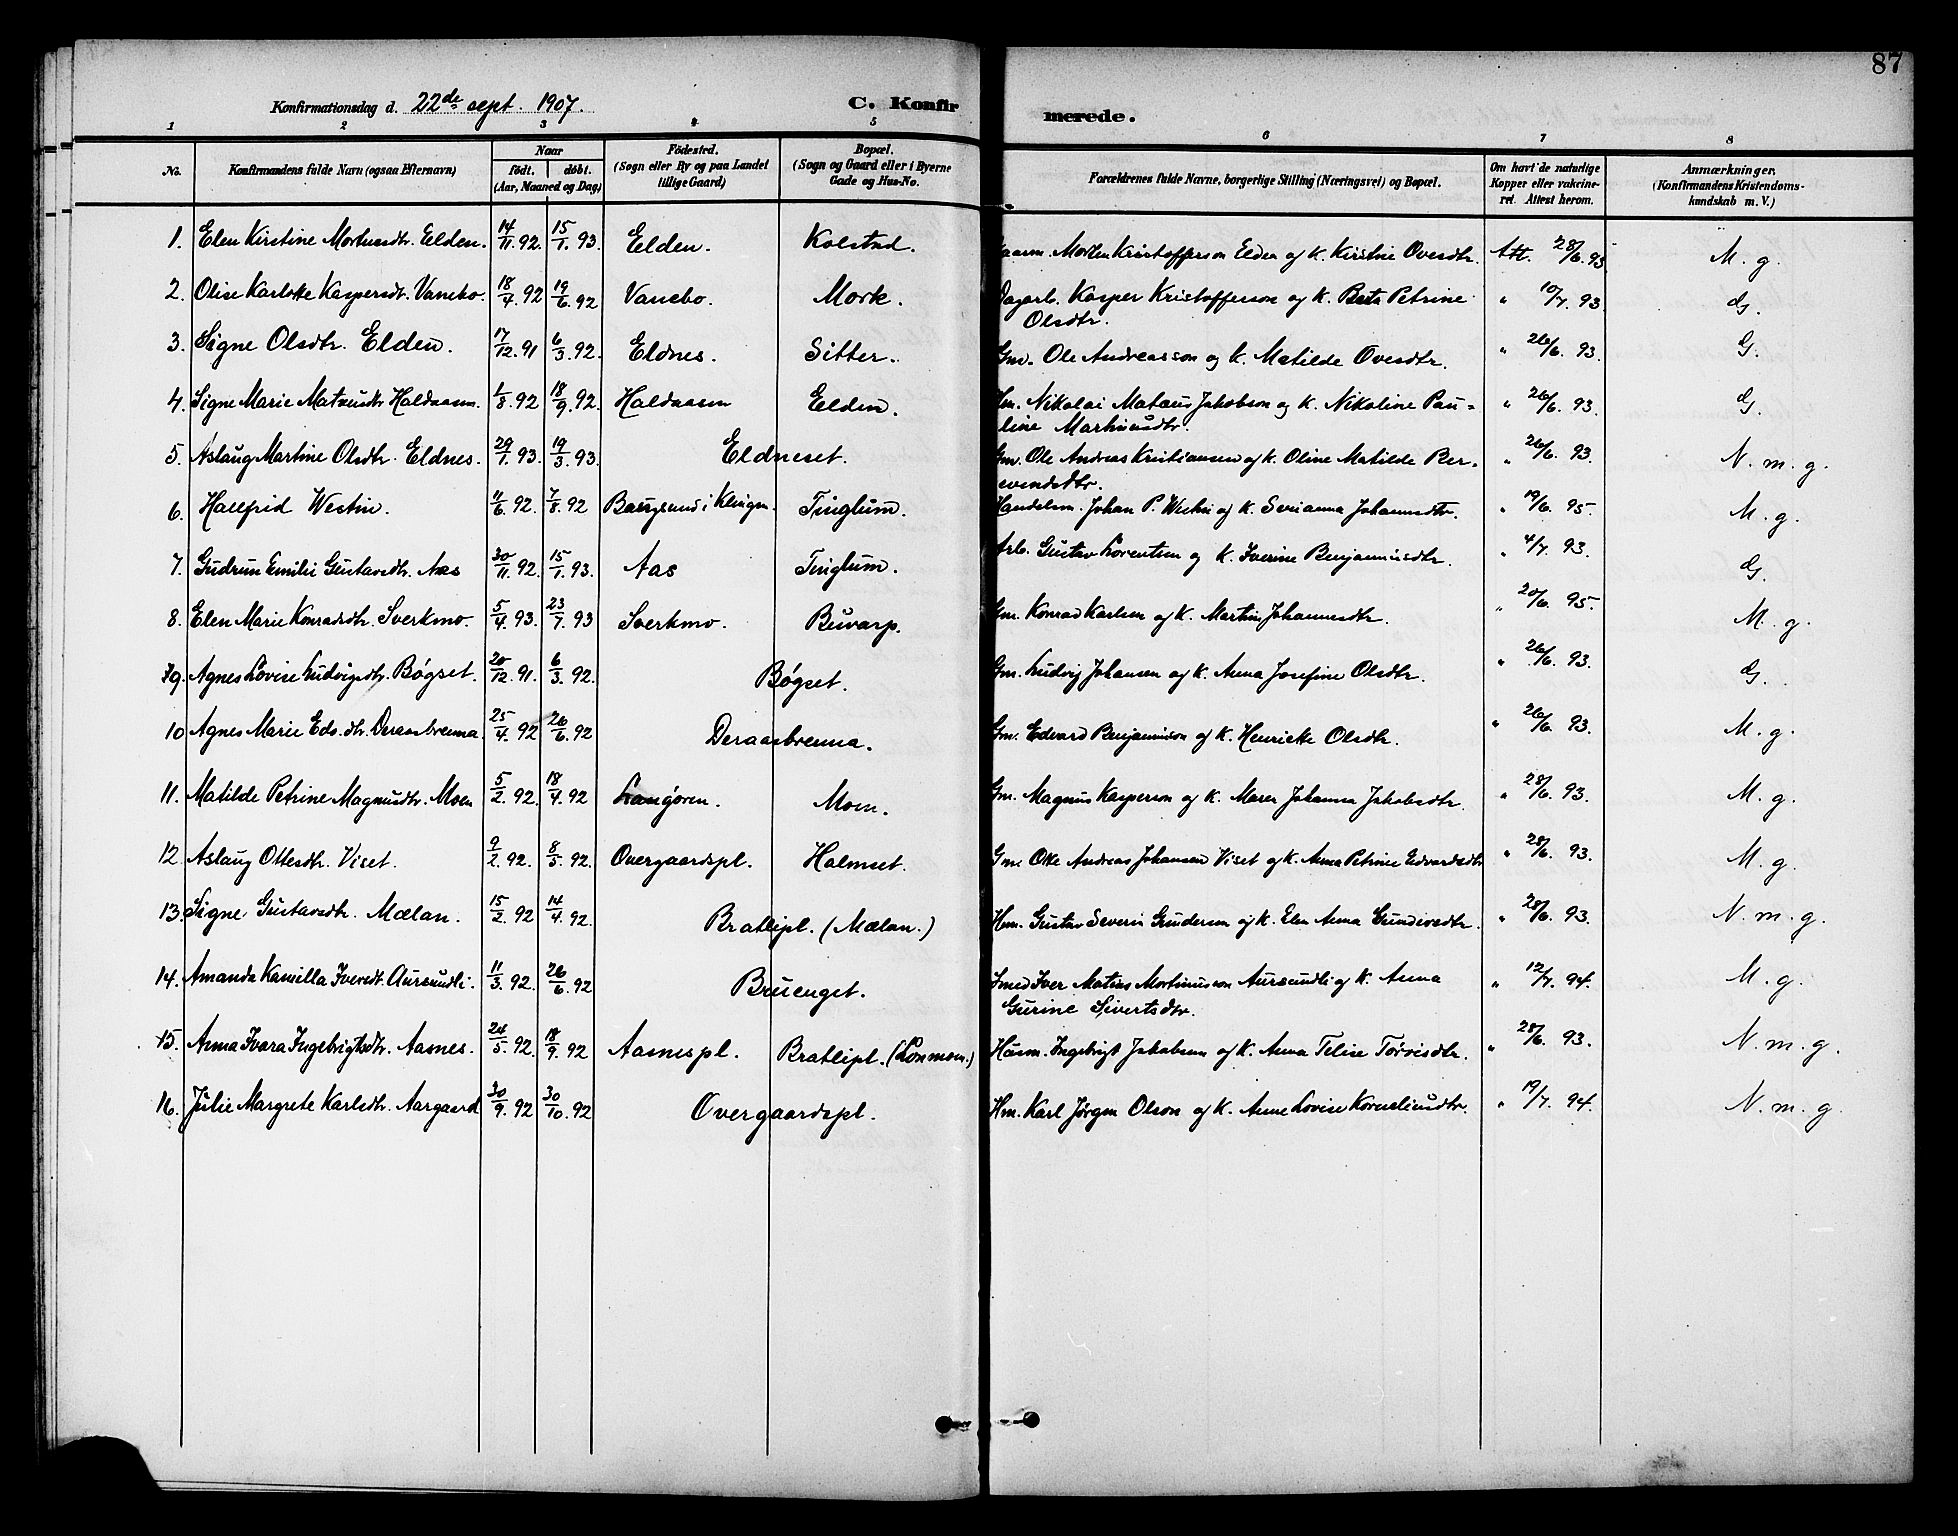 87
Konfirmationsdag d. 22de sept. 1907.
C. Konfirmerede.
1 2 3 4 5 6 7 8
No. Konfirmandens fulde Navn (ogsaa Efternavn) Naar födt. döbt. (Aar, Maaned og Dag) Födested. (Sogn eller By og paa Landet tillige Gaard) Bopæl. (Sogn og Gaard eller i Byerne Gade og Hus-No. Forældrenes fulde Navne, borgerlige Stilling (Næringsvei) og Bopæl. Om havt de naturlige Kopper eller vakcineret. Attest herom. Anmærkninger. (Konfirmandens Kristendomskundskab m. V.)
1. Elen Kirstine Mortensdtr. Eelden. 14/11. 92. 15/1. 93. Eelden. Kolstad. Morten Kristofferson Elden og K. Kirstine Ovesdtr. Att. 28/6. 93 M. g.
2. Olise Karlotte Kaspersdt. Vanebo. 18/4. 92 19/6. 92 Vanebo. Mork. Dagarb. Kasper Kristofferson og K. Petrine Olsdtr. " 10/7. 93. G.
3. Signe Olsdtr. Elden. 17/12. 91 6/3. 92. Eldnes. Sitter. Gm. Ole Andreasson og K. Matilde Ovesdtr. " 26/6. 93. G.
4. Signe Marie Mateusdtr Haldaasen. 1/8. 92 18/9. 92. Haldaasen Eelden. Hm. Nikolai Mateus Jakobson og K. Nikoline Pauline Martinusdtr. " 26/6. 93. G.
5. Aslaug Martine Olsdtr. Eldnes. 29/1. 93. 19/3. 93. Eldneset. Gm. Ole Andreas Kristiansen og K. Oline Matilde Berevendsdtr. " 26/6. 93. N. m. g.
6. Hallfrid Westin. 11/6. 92. 7/8. 92 i Klingen. Tinglum. Handelsm. Johan P. Westin og K. Serianna Johannesdtr. " 19/6. 95. M. g.
7. Gudrun Emilie Gustavsdtr. Aas 30/11. 92. 15/1. 93. Aas Tinglum. Arb. Gustav Lorentsen og K. Iverine Benjaminsdtr. " 4/7. 93. G.
8. Elen Marie Konradsdtr. Sverkmo. 5/4. 93. 23/7. 93 Sverkmo. Buvarp. Gm. Konrad Karlsen og K. Martine Johannesdtr. " 20/6. 95. M. g.
9. Agnes Lovise Ludvigsdtr. Bøgset. 20/12. 91. 6/3. 92. Bøgset. Gm. Ludvig Johansen og K. Anna Josefine Olsdtr. " 26/6. 93. G.
10 Agnes Marie Eds.dtr. Deraasbrenna 25/4. 92 26/6. 92 Deraasbrenna. Gm. Edvard Benjaminson og K. Henriette Olsdtr. " 26/6. 93. M. g.
11. Matilde Petrine Magnusdtr. Moen 5/2. 92. 18/4. 92 Langøren. Moen. Gm. Magnus Kasperson og K. Maren Johanna Jakobsdtr. " 28/6. 93. M. g.
12. Aslaug Ottesdtr. Viset. 9/2. 92. 8/5. 92. Overgaardspl. Halmset. Gm. Otte Andreas Johansen Viset og K. Anna Petrine Edvardsdtr " 28/6. 93. M. g.
13. Signe Gustavsdtr. Mælan. 15/2. 92 14/4. 92. Bratlipl. (Mælan.) Hm. Gustav Severin Gunderson og K. Elen Anna " 28/6. 93. N. m. g.
14. Amanda Kamilla Iversdt. Aursundli. 11/3. 92. 26/6. 92 Bruenget. Smed Iver Matias Mortinusson Aursundli og K. Anna Gurine Sivertsdtr. " 12/7. 94. M. g.
15. Anna Ivara Ingebrigtsdtr. Aasnes. 24/5. 92. 18/9. 92 Aasnespl. Bratlipl. (Lonmoen.) Husm. Ingebrigt Jakobsen og K. Anna Telise Torrisdtr. " 28/6. 93. N. m. g.
16. Julie Margrete Karlsdtr. Aargaard 30/9. 92 30/10. 92 Overgaardspl. Hm. Karl Jørgen Olson og K. Anne Lovise Korneliusdtr. " 19/7. 94. N. m. g.